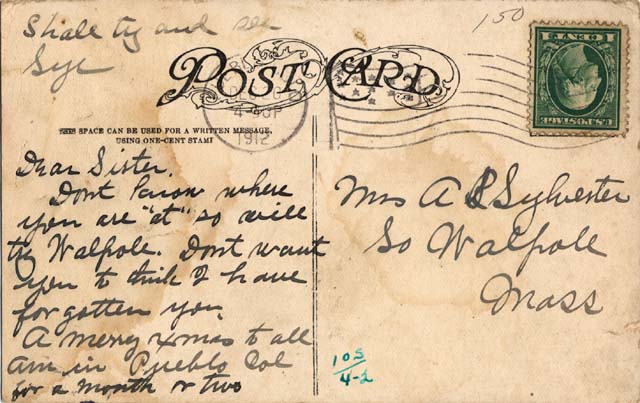 Shall try and see
Sye
150
POST CARD
4-PM
1912
U.S. POSTAGE
1 CENT 1
THIS SPACE CAN BE USED FOR A WRITTEN MESSAGE.
USING ONE-CENT STAMP
Dear Sister.
Dont know where
you are "at" so will
try Walpole. Dont want
you to think I have
forgotten you.
A merry xmas to all
am in Pueblo Col
for a month or two
Mrs A R Sylvester
So Walpole
Mass
105
4-2